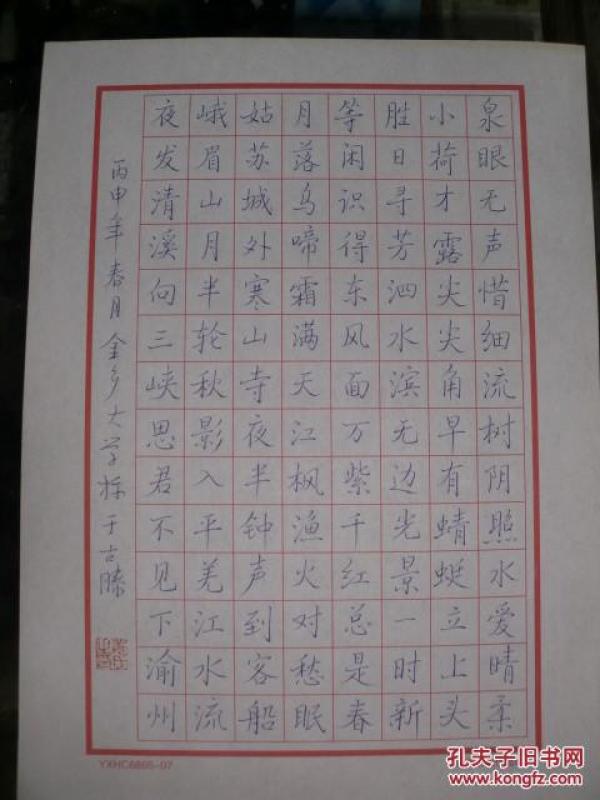 泉眼无声惜细流树阴照水爱晴柔
小荷才露尖尖角早有蜻蜓立上头
胜日寻芳泗水滨无边光景一时新
等闲识得东风面万紫千红总是春
月落乌啼霜满天江枫渔火对愁眠
姑苏城外寒山寺夜半钟声到客船
峨眉山月半轮秋影入平羌江水流
夜发清溪向三峡思君不见下渝州
丙申年春月金乡大学栋于古滕
YXHC6865-07
孔夫子旧书网
www.kongfz.com